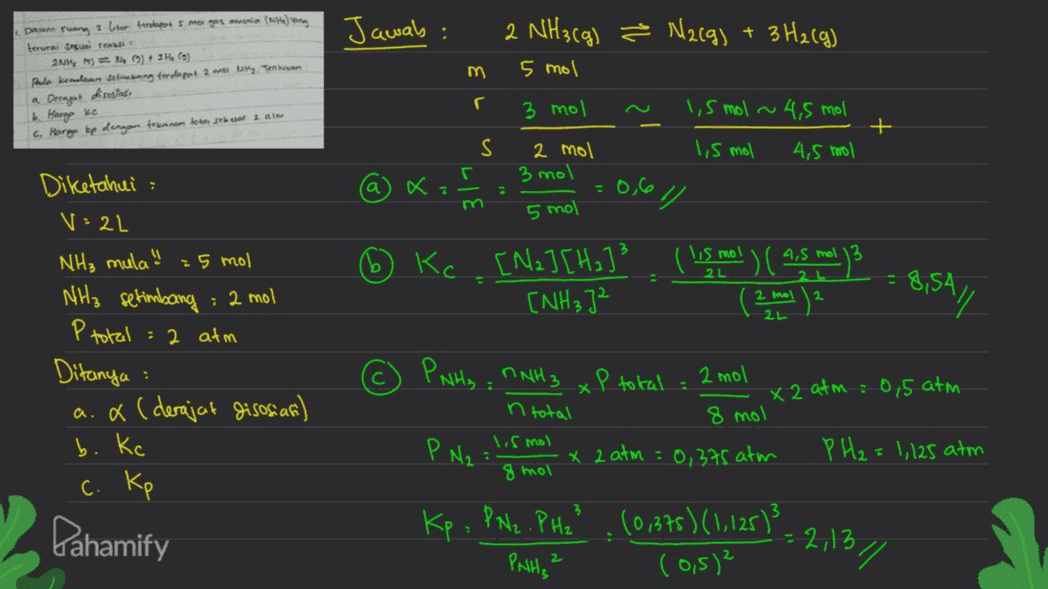 1. Dalam ruang 2 liter terdapat 5 mol gas amonia (NH3) yang
terurai sesuai reaksi :
2NH3 (g) ⇌ N2 (g) + 3H2 (g)
Pada keadaan setimbang terdapat 2 mol NH3. Tentukan
a. Derajat disosiasi
b. Harga Kc
c. Harga kp dengan tekanan total sebesar 2 atm
Jawab : 2 NH3(g) ⇌ N2(g) + 3H2(g)
m 5 mol
r 3 mol ~ 1,5 mol ~ 4,5 mol
+
s 2 mol 1,5 mol 4,5 mol
Diketahui :
V = 2L
NH3 mula" = 5 mol
NH3 setimbang : 2 mol
P total = 2 atm
Ditanya :
a. α (derajat disosiasi)
b. Kc
c. Kp
(a) α = r/m = 3 mol/5 mol = 0,6 //
(b) Kc = [N2][H2]³/[NH3]² = (1,5 mol/2L)(4,5 mol/2L)³/(2 mol/2L)² = 8,54 //
(c) PNH3 = nNH3/n total x P total = 2 mol/8 mol x 2 atm = 0,5 atm
P N2 = 1,5 mol/8 mol x 2 atm = 0,375 atm PH2 = 1,125 atm
Kp = PN2 . PH2³/PNH3² = (0,375)(1,125)³/(0,5)² = 2,13 //
Pahamify